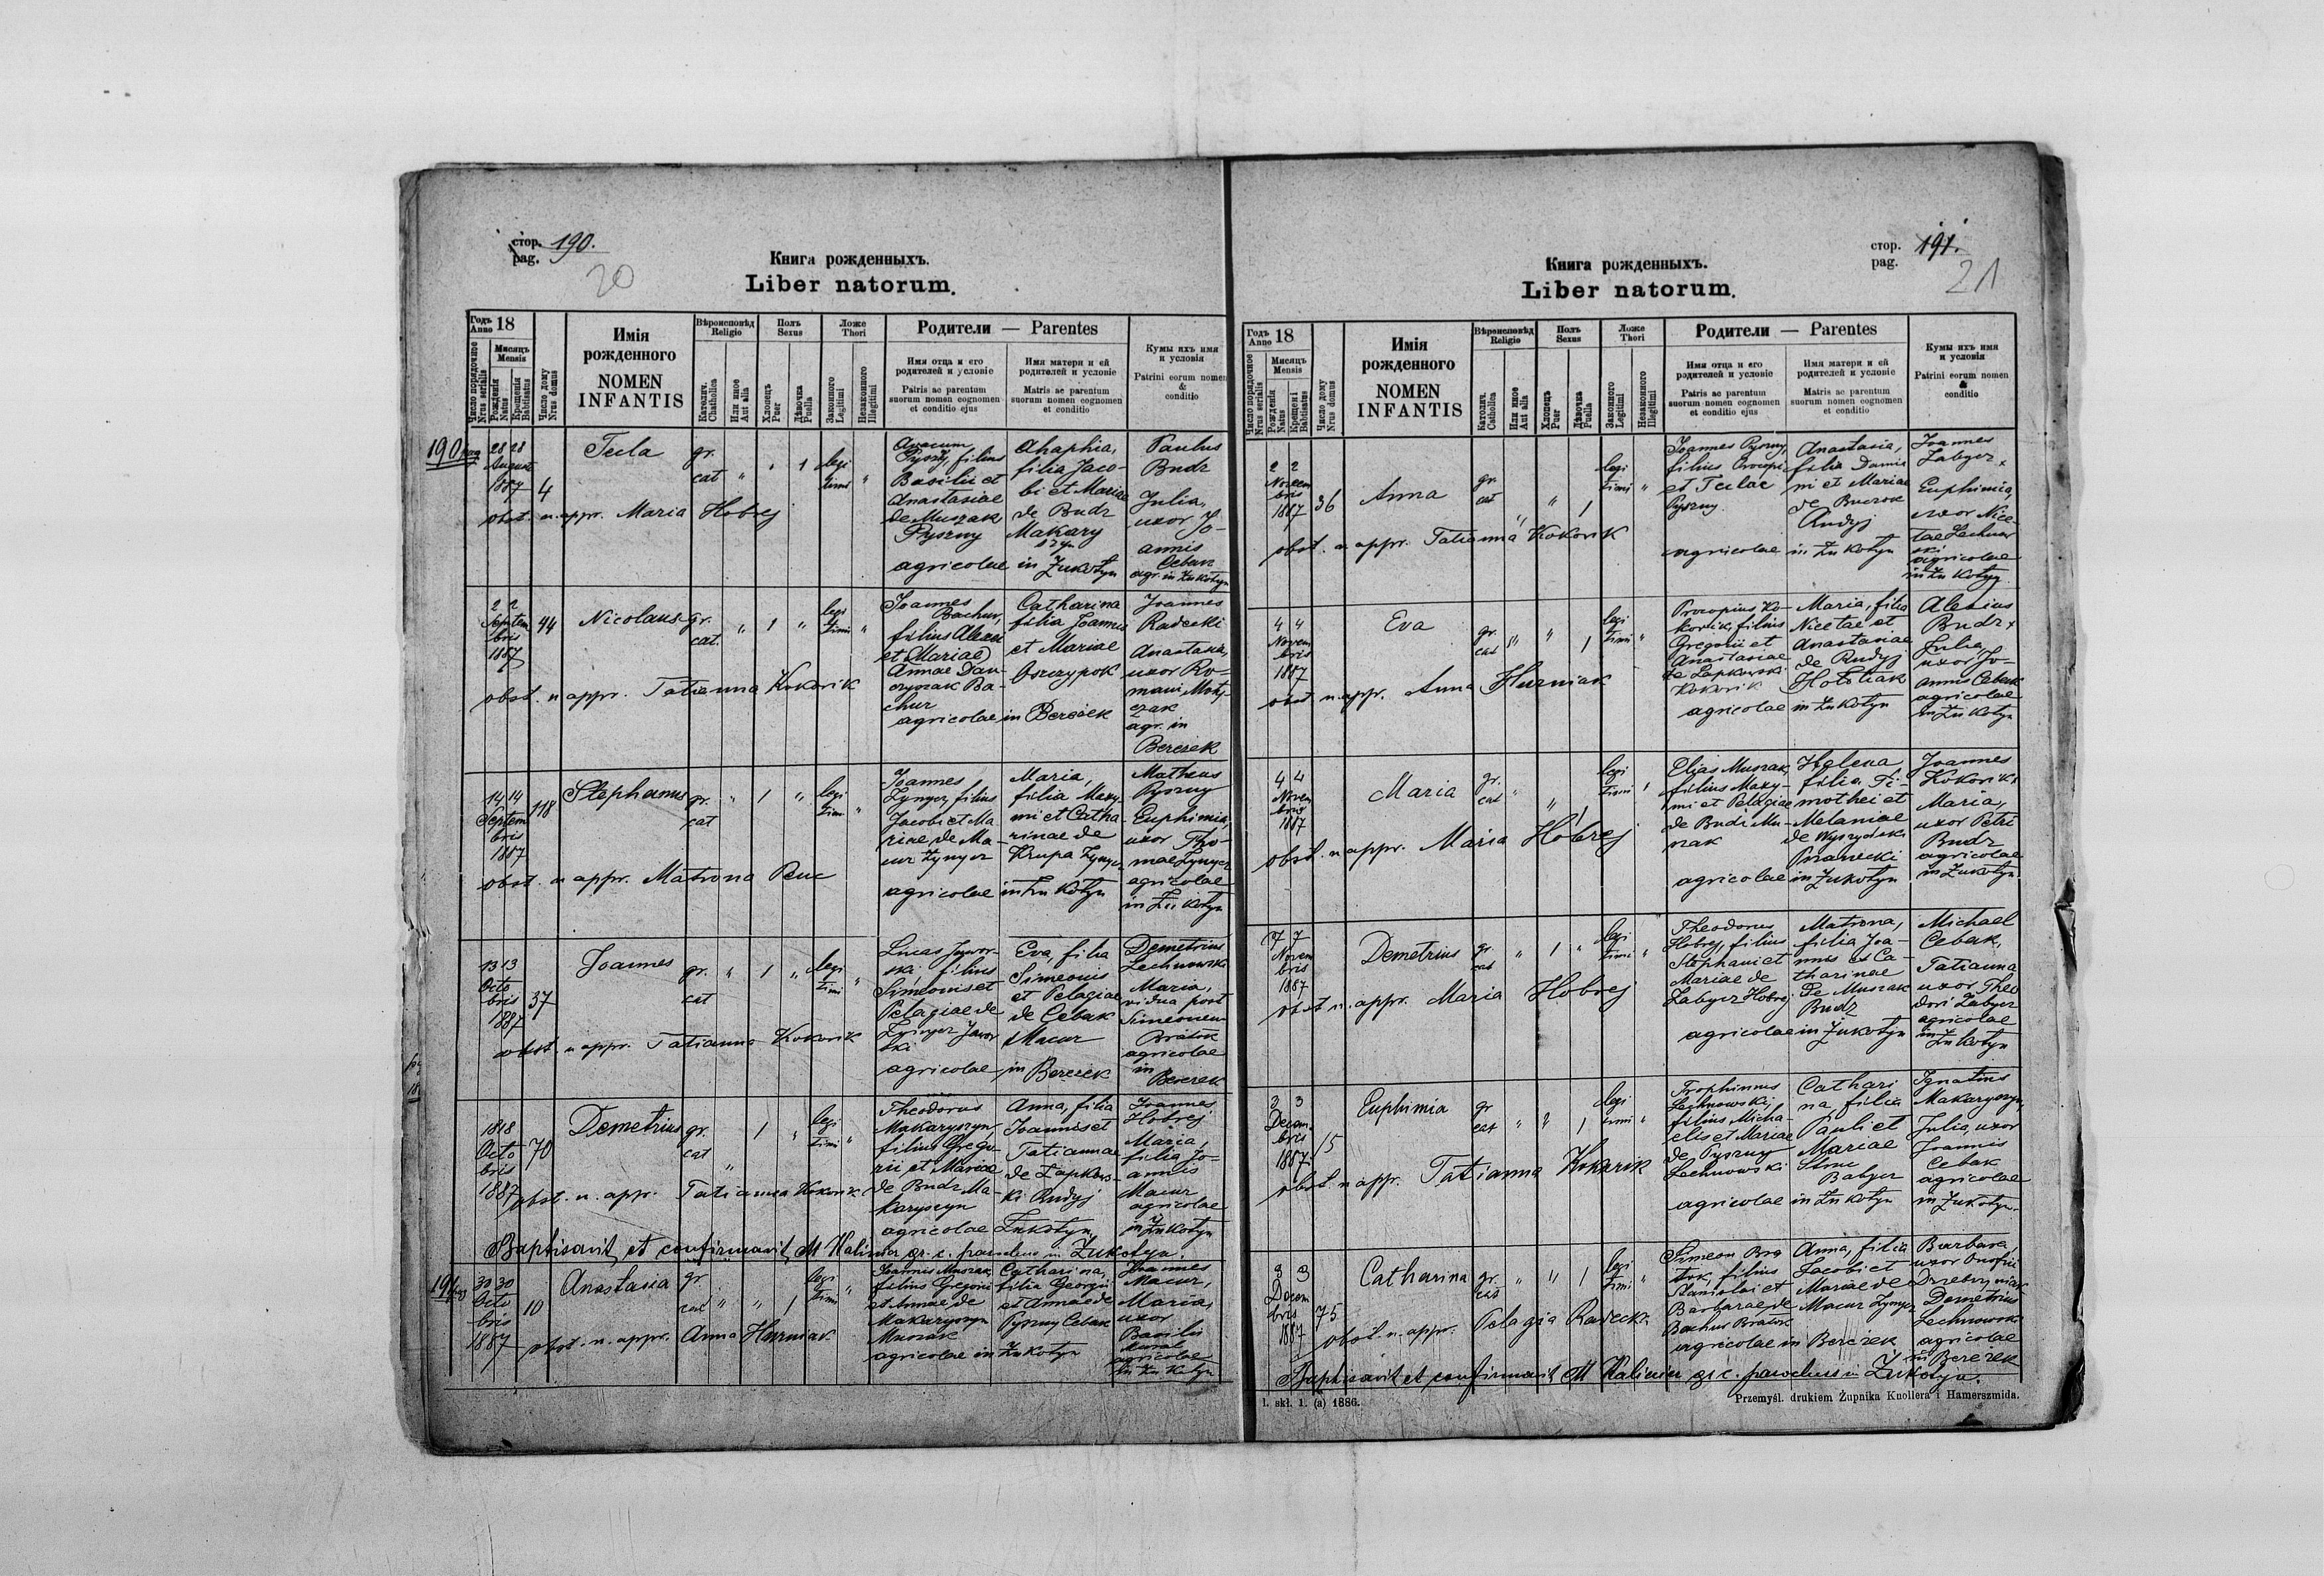 стор. 190.
pag.
20
Книга рожденныхъ.
Liber natorum.
Число порядочное
Nrus serialis
Годъ
Anno 18
Мѣсяцъ
Mensis
Рожденія
Natus
Крещенія
Babtisatus
Число дому
Nrus domus
Имія
рожденного
NOMEN
INFANTIS
Вѣроисповѣд
Religio
Католич.
Chatholica
Или иное
Aut alia
Полъ
Sexus
Хлопецъ
Puer
Дѣвочка
Puella
Ложе
Thori
Законного
Legitimi
Незаконного
Illegitimi
Родители — Parentes
Имя отца и его
родителей и условіе
Patris ac parentum
suorum nomen cognomen
et conditio ejus
Имя матери и ей
родителей и условіе
Matris ac parentum
suorum nomen cognomen
et conditio
Кумы ихъ имя
и условія
Patrini eorum nomen
&
conditio
190
28 28
August
1887
4
Tecla
gr.
cat
" 1
legi
timi "
Pyszny, filius
Basilii et
Anastasiae
de Muszak
Pyszny
agricolae
Ahaphia,
filia Jaco-
bi et Mariae
de Budz
Makary
szyn
in Żukotyn
Paulus
Budz
Julia,
uxor Jo-
annis
Cebak
agr. in Żukotyn
obst. n. appr. Maria Hobrej
2 2
Septem
bris
1887
44
Nicolaus
gr.
cat.
" 1 "
legi
timi "
Joannes
Bachur,
filius Alexii
et Mariae
Annae Dan-
czyszak Ba-
chur
agricolae
Catharina
filia Joannis
et Mariae
Oszczypok
in Bereżek
Joannes
Radecki
Anastasia,
uxor Ro-
mani Moty-
czak
agr. in
Bereżek
obst. n appr. Tatianna Kokorik
14 14
Septem
bris
1887
118
Stephanus
gr.
cat
" 1 "
legi
timi "
Joannes
Zynycz, filius
Jacobi et Ma
riae de Ma-
cur Zynycz
agricolae
Maria,
filia Maxy-
mi et Catha
rinae de
Krupa Zynycz
in Żukotyn
Matheus
Pyszny
Euphimia,
uxor Tho-
mae Zynycz
agricolae
in Żukotyn
obst. n appr. Matrona Buc
13 13
Octo
bris
1887
37
Joannes
gr.
cat
" 1 "
legi
timi "
Lucas Jawor-
ski, filius
Simeonis et
Pelagiae de
Zynycz Jawor
ski
agricolae
Eva, filia
Simeonis
et Pelagiae
de Cebak
Macur
in Bereżek
Demetrius
Lechnowski
Maria,
vidua post
Simeonem
Bratok
agricolae
in
Bereżek
obst. n appr. Tatianna Kokorik
18 18
Octo
bris
1887
70
Demetrius
gr.
cat
" 1 "
legi
timi "
Theodorus
Makaryszyn
filius Grego-
rii et Mariae
de Budz Ma-
karyszyn
agricolae
Anna, filia
Joannis et
Tatiannae
de Łapkows-
ki Rudyj
Żukotyn
Joannes
Hobrej
Maria,
filia Jo-
annis
Macur
agricolae
in Żukotyn
obst. n. appr. Tatianna Kokorik
Baptisavit et confirmavit M Kalimin gr. c. parochus in Żukotyn.
191
30 30
Octo
bris
1887
10
Anastasia
gr
cat
" " 1
legi
timi "
Joannis Muszak,
filius Gregorii
et Annae de
Makaryszyn
Muszak
agricolae
Catharina,
filia Georgii
et Annae de
Pyszny Cebak
in Żukotyn
Joannes
Macur,
Maria,
uxor
Basilii
agricolae
in Żukotyn
obst. n. appr. Anna Hurniak
стор. 191.
pag.
21
Книга рожденныхъ.
Liber natorum.
Число порядочное
Nrus serialis
Годъ
Anno 18
Мѣсяцъ
Mensis
Рожденія
Natus
Крещені
Babtisatus
Число дому
Nrus domus
Имія
рожденного
NOMEN
INFANTIS
Вѣроисповѣд
Religio
Католич.
Chatholica
Или иное
Aut alia
Полъ
Sexus
Хлопецъ
Puer
Дѣвочка
Puella
Ложе
Thori
Законного
Legitimi
Незаконного
Illegitimi
Родители — Parentes
Имя отца и его
родителей и условіе
Patris ac parentum
suorum nomen cognomen
et conditio ejus
Имя матери и ей
родителей и условіе
Matris ac parentum
suorum nomen cognomen
et conditio
Кумы ихъ имя
и условія
Patrini eorum nomen
&
conditio
2 2
Novem
bris
1887
36
Anna
gr.
cat
" " 1
legi
timi "
Joannes Pyszny,
filius Procopii
et Teclae
Pyszny.
agricolae
Anastasia,
filia Damia
ni et Mariae
de Buczok
Rudyj
in Żukotyn
Joannes
Zabycz
Euphimia,
uxor Nice-
tae Lechnow
ski
agricolae
in Żukotyn.
obst. n appr. Tatianna Kokorik
4 4
Novem
bris
1887
Eva
gr.
cat
" " 1
legi
timi "
Procopius Ko-
korik, filius
Gregorii et
Anastasiae
de Łapkowski
Kokorik
agricolae
Maria, filia
Nicetae et
Anastasiae
de Rudyj
Hotoliak
in Żukotyn
Alexius
Budz
Julia,
uxor Jo-
annis Cebak
agricolae
in Żukotyn
obst n appr. Anna Hurniak
4 4
Novem
bris
1887
Maria
gr.
cat
" " 1
legi
timi "
Elias Muszak,
filius Maxy-
mi et Pelagiae
de Budz Mu-
szak
agricolae
Helena
filia Ti-
mothei et
Melaniae
de
in Żukotyn
Joannes
Kokorik
Maria,
uxor Petri
Budz
agricolae
in Żukotyn.
obst. n appr. Maria Hobrej
7 7
Novem
bris
1887
Demetrius
gr.
cat
" 1 "
legi
timi "
Theodorus
Hobrej, filius
Stephani et
Mariae de
Zabycz Hobrej
agricolae
Matrona,
filia Joa-
nnis et Ca-
tharinae
de Muszak
Budz
in Żukotyn
Michael
Cebak,
Tatianna
uxor Theo
dori Zabycz
agricolae
in Żukotyn
obst n. appr. Maria Hobrej
3 3
Decem
bris
1887
15
Euphimia
gr
cat
" " 1
legi
timi "
Trophimus
Lechnowski,
filius Micha-
elis et Mariae
de Pyszny
Lechnowski
agricolae
Cathari
na, filia
Pauli et
Mariae
in Żukotyn
Ignatius
Makaryszyn,
Julia, uxor
Joannis
Cebak
agricolae
in Żukotyn.
obst n appr. Tatianna Kokorik
3 3
Decem
bris
1887
75
Catharina
gr.
cat
" " 1
legi
timi "
Simeon Bra
tok, filius
Stanislai et
Barbarae de
Bachur Bratok
agricolae
Anna, filia
Jacobi et
Mariae de
Macur Zynycz
in Bereżek
Barbara
uxor Onofrii
Demetrius
Lechnowski
agricolae
in Bereżek
obst. n. appr. Pelagia Radecka
Baptisavit et confirmavit M Kalimin gr c. parochus in Żukotyn.
1. skł. 1. (a) 1886.
Przemyśl. drukiem Żupnika Knollera i Hamerszmida.